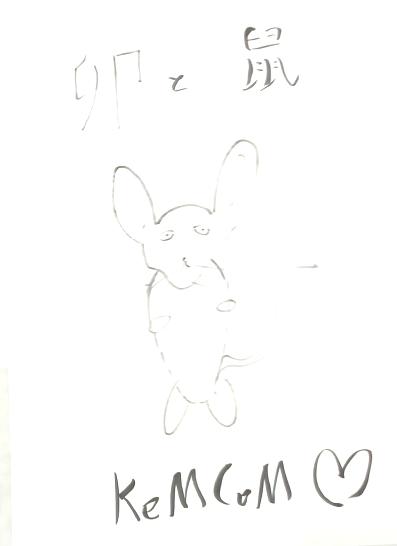 卯と鼠
KeMCoM ♡